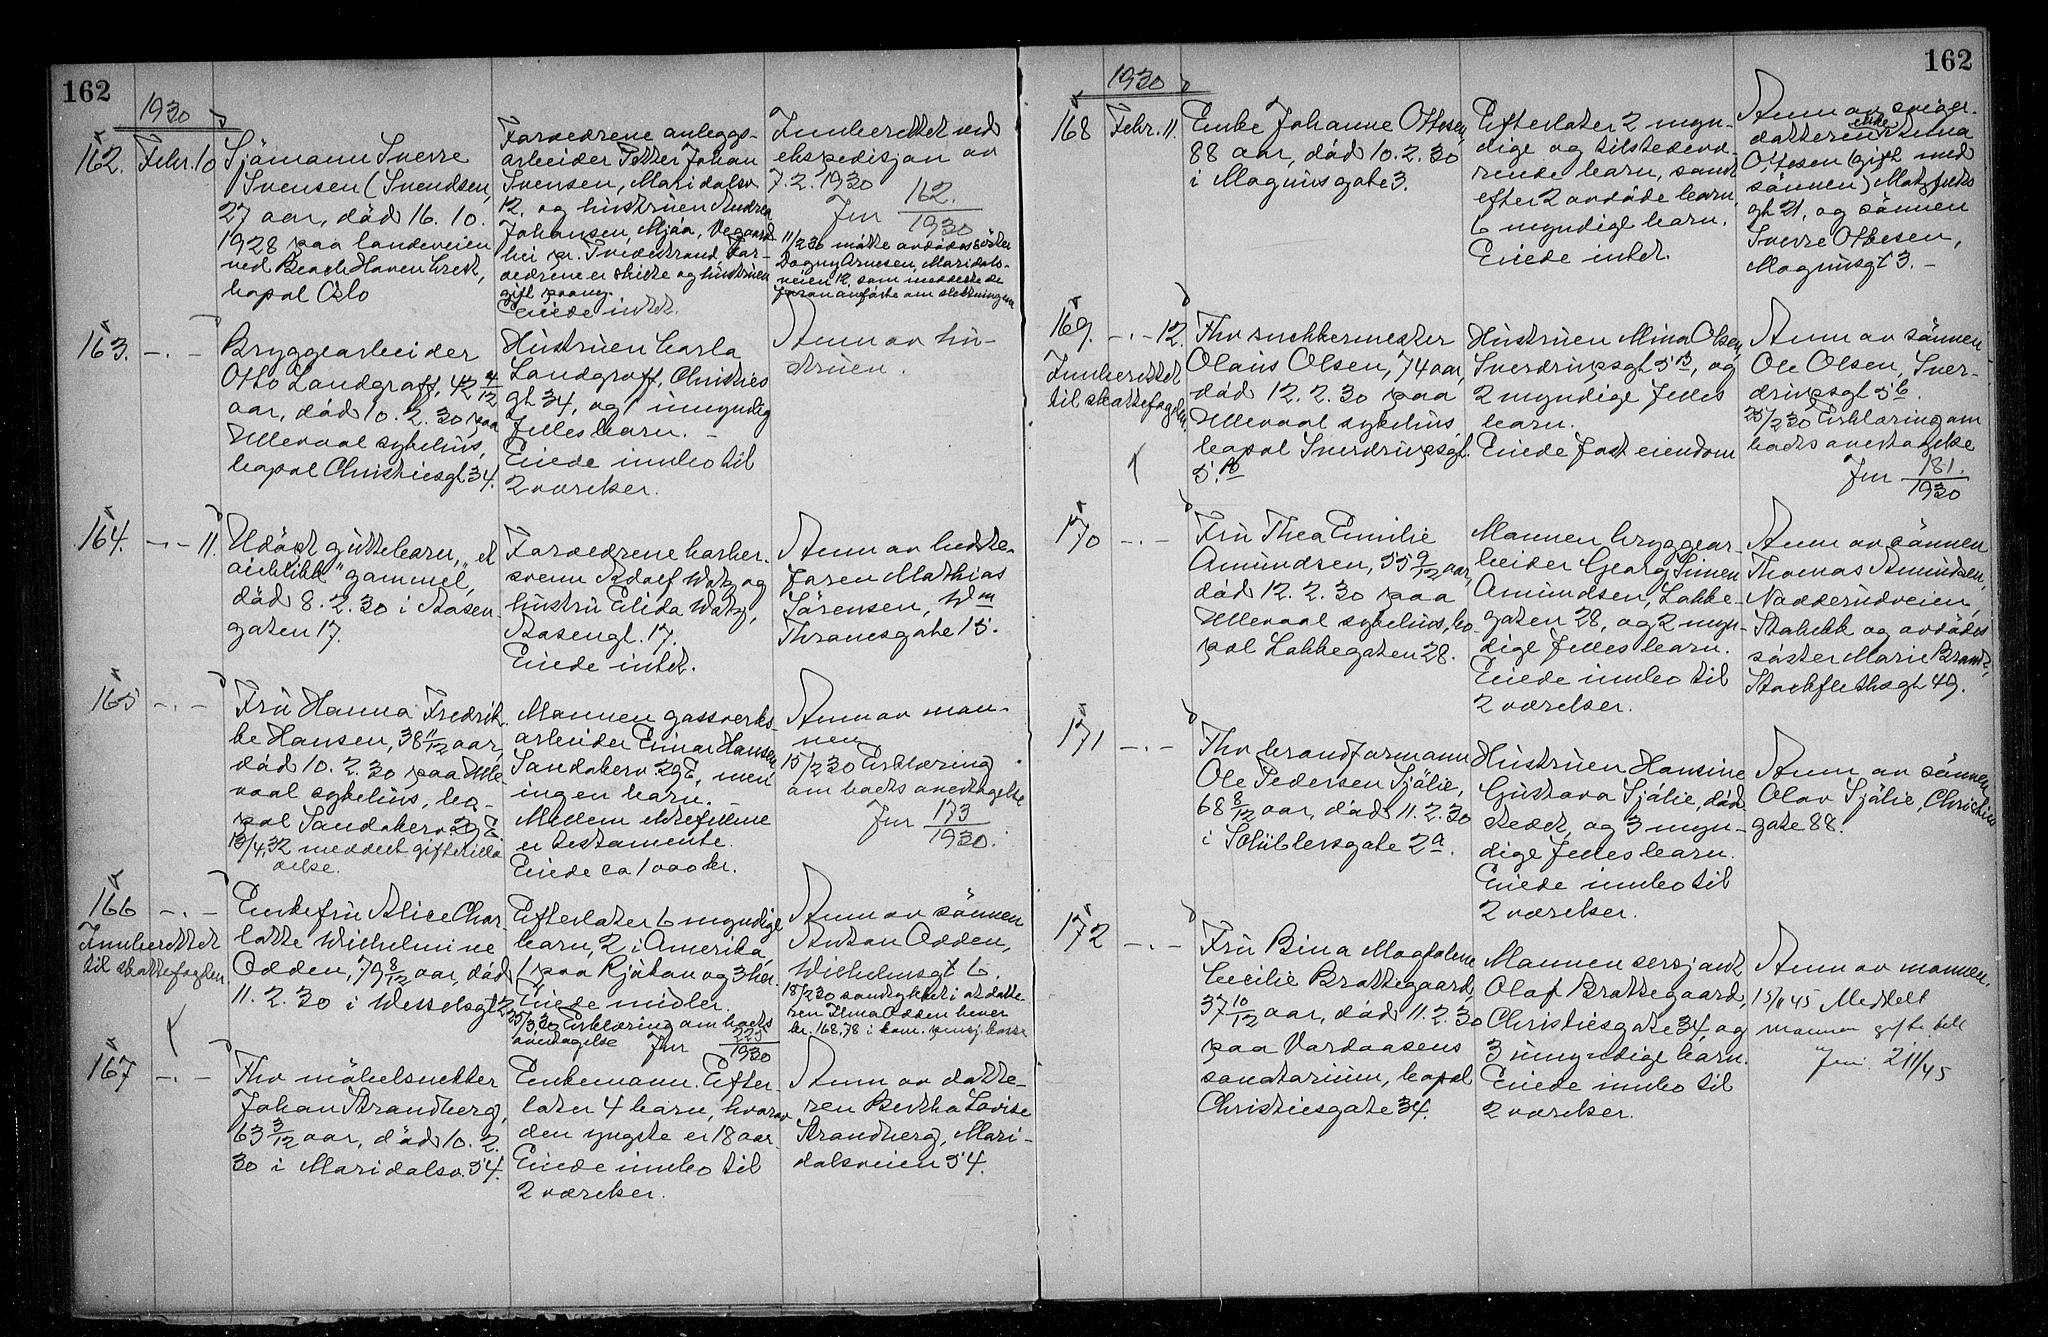 162
1930
162. Febr. 10
Sjömann Sverre
Svensen (Svendsen,
27 aar, död 16. 10.
1928 paa landeveien
ved Beach Haven Crest,
bopal Oslo
Foreldrene anleggs-
arbeider Petter Johan
Svensen, Maridalsv.
12. og hustruen Andrea
Johansen, Mjåa, Vegaards-
hei pr. Tvedestrand. For-
eldrene er skilte og hustruen
gift paany.
Eiede intet.
Innberettet ved
ekspedisjon av
7. 2. 1930
Jnr 162.
1930
11/2 30 møtte avdødes söster
Dagny Arnesen, Maridals-
veien 12, som meddelte de
foran anførte om slektningene
163. -.-
Bryggearbeider
Otto Landgraff, 42 4/12
aar, död 10. 2. 30 paa
Ullevaal sykehus,
bopal Christiesgt 34.
Hustruen Carla
Landgraff, Christies
gt 34, og 1 umyndig
felles barn. -
Eiede innbo til
2 værelser.
Anm av hu-
struen.
164. -.- 11.
Udöpt guttebarn, "et
öieblikk" gammel,
död 8. 2. 30 i Aasen-
gaten 17.
Foreldrene barber-
svenn Adolf Watz og
hustru Elida Watz,
Aasengt. 17.
Eiede intet.
Anm av beste-
faren Mathias
Sörensen, Wm
Thranesgate 15.
165 -.-
Fru Hanna Fredrik-
ke Hansen, 38 11/12 aar,
död 10. 2. 30 paa Ulle-
vaal sykehus, bo-
pal Sandakerv. 29 E.
13/4 32 meddelt gifterilla-
delse.
Mannen gassverks-
arbeider Einar Hansen
Sandakerv. 29 E, men
ingen barn. -
Mellem ektefellene
er testamente.
Eiede ca 1000 kr.
Anm av man-
nen
15/2 30 Erklæring
om boets overtagelse
Jnr 173
1930.
166 -.-
Innberettet
til skattefogden
Enkefru Alice Char-
lotte Wilhelmine
Odden, 79 8/12 aar, död
11. 2. 30 i Wesselsgt 2
Efterlater 6 myndige
barn, 2 i Amerika,
1 paa Rjukan og 3 her.
Eiede midler.
25/3 30 Erklæring om boets
overtagelse Jnr 225
1930
Anm av sönnen
Anton Odden,
Wilhelmsgt 6.
18/2 30 samtykket i at datte-
ren Alma Odden hever
kr. 168,78 i kom. pensj. kasse
167 -.-
Fhv möbelsnekker
Johan Strandberg,
63 3/12 aar, död 10. 2.
30 i Maridalsv. 54.
Enkemann. Efter-
later 4 barn, hvorav
den yngste er 18 aar.
Eiede innbo til
2 værelser.
Anm av datte-
ren Bertha Lovise
Strandberg, Mari-
dalsveien 54.
162
1930
168 Febr. 11.
Enke Johanne Ottesen,
88 aar, död 10. 2. 30
i Magnusgate 3.
Efterlater 2 myn-
dige og tilstedevæ-
rende barn, samt
efter 2 avdöde barn
6 myndige barn.
Eiede intet.
Anm av sviger-
datteren enke Anna
Ottesen (gift med
sönnen) Matzfeldts
gt 21, og sönnen
Sverre Ottesen,
Magnusgt 3. -
169. -.- 12.
Innberettet
til skattefogden.
Fhv snekkermester
Olaus Olsen, 74 aar,
död 12. 2. 30 paa
Ullevaal sykehus,
bopal Sverdrupsgt
5 B
Hustruen Mina Olsen,
Sverdrupsgt 5 B, og
2 myndige felles
barn.
Eiede fast eiendom
Anm av sönnen
Ole Olsen, Sver-
drupsgt 5 b.
25/2 30 Erklæring om
boets overtagelse
Jnr 181.
1930
170 -.-
Fru Thea Emilie
Amundsen, 55 9/12 aar,
död 12. 2. 30 paa
Ullevaal sykehus, bo-
pal Lakkegaten 28.
Mannen bryggear-
beider Georg Simen
Amundsen, Lakke-
gaten 28, og 2 myn-
dige felles barn.
Eiede innbo til
2 værelser.
Anm av sönnen
Thomas Amundsen,
Nadderudveien,
Stabekk og avdödes
söster Marie Brandt,
Stockflethsgt 49.
171 -.-
Fhv brandformann
Ole Pedersen Sjölie,
68 8/12 aar, död 11. 2. 30
i Schüblersgate 2 a.
Hustruen Hansine
Gustava Sjölie, död-
stedet, og 3 myn-
dige felles barn.
Eiede innbo til
2 værelser.
Anm av sönnen
Olav Sjölie, Christies
gate 88.
172 -.-
Fru Bina Magdalene
Cecilie Brattegaard,
37 10/12 aar, död 11. 2. 30
paa Vardaasens
sanatorium, bopal
Christiesgate 34.
Mannen sersjant
Olaf Brattegaard,
Christiesgate 34, og
3 umyndige barn.
Eiede innbo til
2 værelser.
Anm av mannen.
15/11 45 Meddelt
mannen gifte till
Jnr 211/45